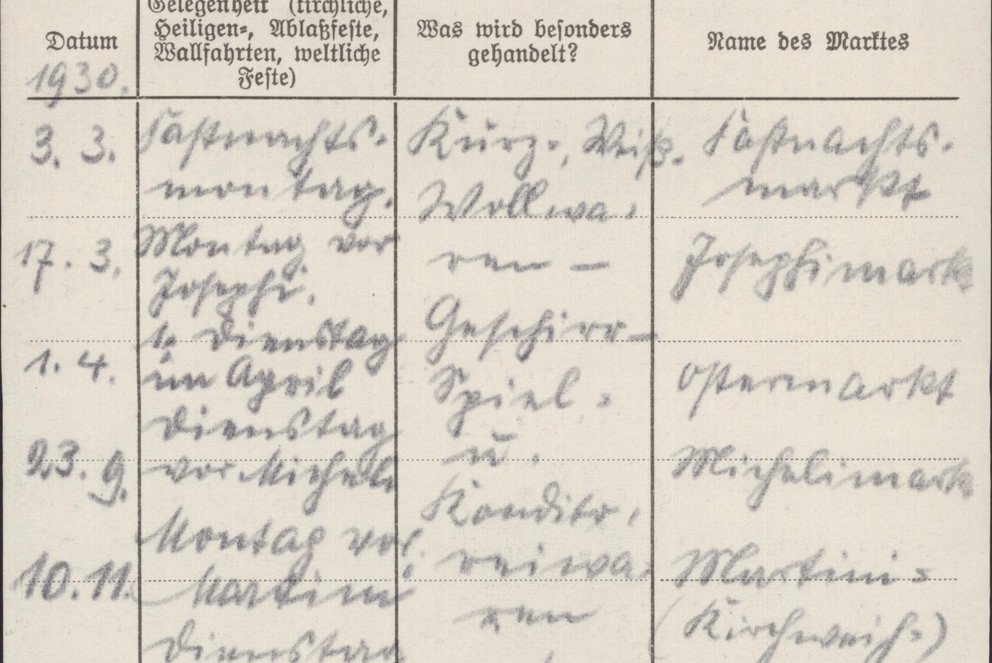 Datum
1930.
Gelegenheit (kirchliche,
Heiligen-, Ablaßfeste,
Wallfahrten, weltliche
Feste)
Was wird besonders
gehandelt?
Name des Marktes
3. 3.
Fastnachts-
montag.
Kurz-, Weiß-
Wollwa-
Fastnachts-
markt
17. 3.
Montag vor
Josephi.
ren -
Josephimarkt
1. 4.
1. Dienstag
im April
Geschirr-
Spiel-
Ostermarkt
23. 9.
Dienstag
vor Micheli
u.
Kondito-
Michelimarkt
10. 11.
Montag vor
Martini
reiwa-
ren
Martini-
(Kirchweih-)
Dienstag